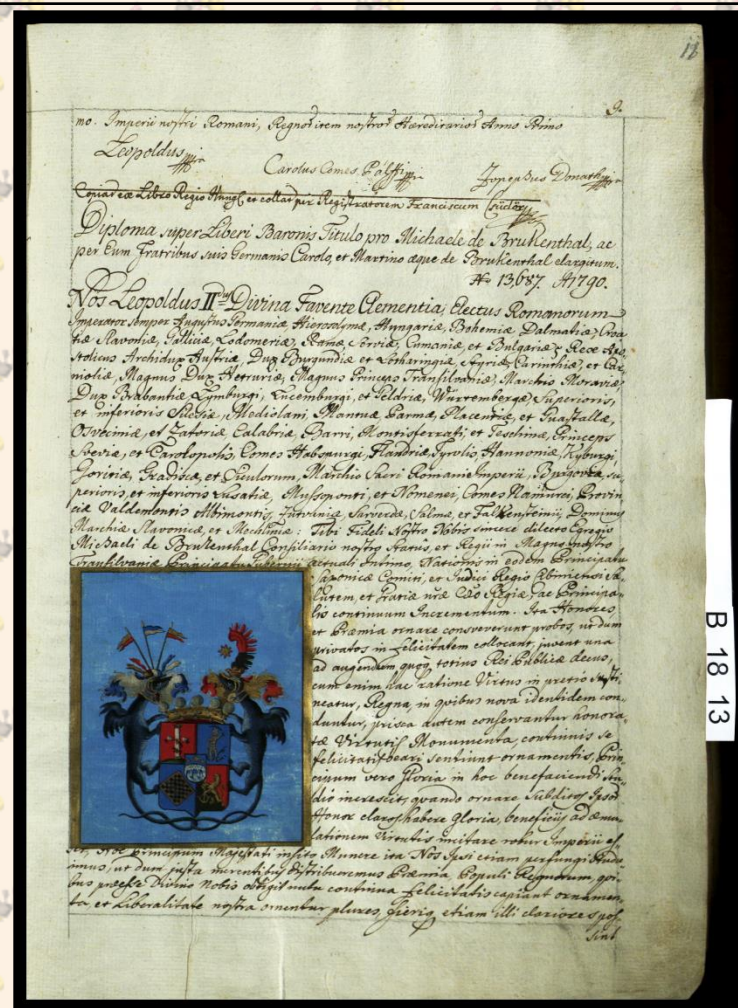 18
9.
mo. Imperii nostri Romani, Regnor. item nostror. Hæreditarior. Anno Primo
Leopoldus
Carolus Comes Pálffi
Josephus Donath
Copiat. ex Libro Regio Hung. et collat. per Registratorem Franciscum
Diploma super Liberi Baronis Titulo pro Michaele de Brukenthal, ac
per Eum Fratribus suis Germanis Carolo, et Martino æque de Brukenthal elargitum.
No 13,687. A1790.
Nos Leopoldus II. Divina Favente Clementia, Electus Romanorum
Imperator semper Augustus Germaniæ, Hierosolymæ, Hungariæ, Bohemiæ Dalmatiæ, Croa
tiæ Slavoniæ, Galliciæ, Lodomeriæ, Ramæ, Serviæ, Cumaniæ, et Bulgariæ Rex Apo
stolicus Archidux Austriæ, Dux Burgundiæ et Lotharingiæ, Styriæ, Carinthiæ, et Car
nioliæ, Magnus Dux Hetruriæ, Magnus Princeps Transilvaniæ, Marchio Moraviæ,
Dux Brabantiæ Lymburgi, Lucemburgi, et Geldriæ, Würtembergæ, Superioris,
et inferioris Silesiæ, Mediolani, Mantuæ, Parmæ, Placentiæ, et Guastallæ,
Osveciniæ, et Zatoriæ, Calabriæ, Barri, Montisferrati, et Teschinæ, Princeps
Sveviæ, et Carolopolis, Comes Habspurgi, Flandriæ Tyrolis, Hannoniæ, Kyburgi
Goritiæ, Gradiscæ, et Marchio Sacri Romani Imperii, Burgoviæ, su
perioris, et inferioris Lusatiæ, Mussoponti, et Nomenei, Comes Namurci, Provin
ciæ Valdemontis Albimontis, Zütphaniæ, Sarverdæ, Salmæ, et Falkensteinii, Dominus
Marchiæ Slavonicæ, et Mechliniæ: Tibi Fideli Nostro Nobis sincere dilecto Egregio
Michaeli de Brukenthal Consiliario nostro Status, et Regii in Magno nostro
Transilvaniæ Principatu Gubernii actuali Intimo, Nationis in eodem Principatu
Saxonicæ Comiti, et Judici Regio Cibiniensi Sa
lutem, et Gratiæ nræ Cæo Regiæ, ac Principa
lis continuum Incrementum. Ita Honores
et Præmia ornare consveverunt probos, ut dum
privatos in felicitatem collocant, juvent una
ad augendum totius Rei Publicæ decus,
cum enim hac ratione Virtus in pretio susti
neatur, Regna, in quibus nova identidem con
duntur, prisca autem conservantur honora
tæ Virtutis Monumenta, continuis se
felicitatis sentiunt ornamentis, Prin
cipum vero Gloria in hoc benefaciendi stu
dio increscit, quando ornare Subditos
Honore claros habere gloria, beneficiis ad æmu
lationem Virtutis incitare robur Imperii es
Hoc principum Majestati insito Munere ita Nos Ipsi etiam perfungi
imus, ut dum justa merentibus distribueremus Præmia, Populi Regnorum, qui
bus præesse Divino Nobis obtigit nutu continua Felicitatis capiant ornamen
ta, et Liberalitate nostra ornentur plures, etiam illi clariores pos
sint
B 18 13